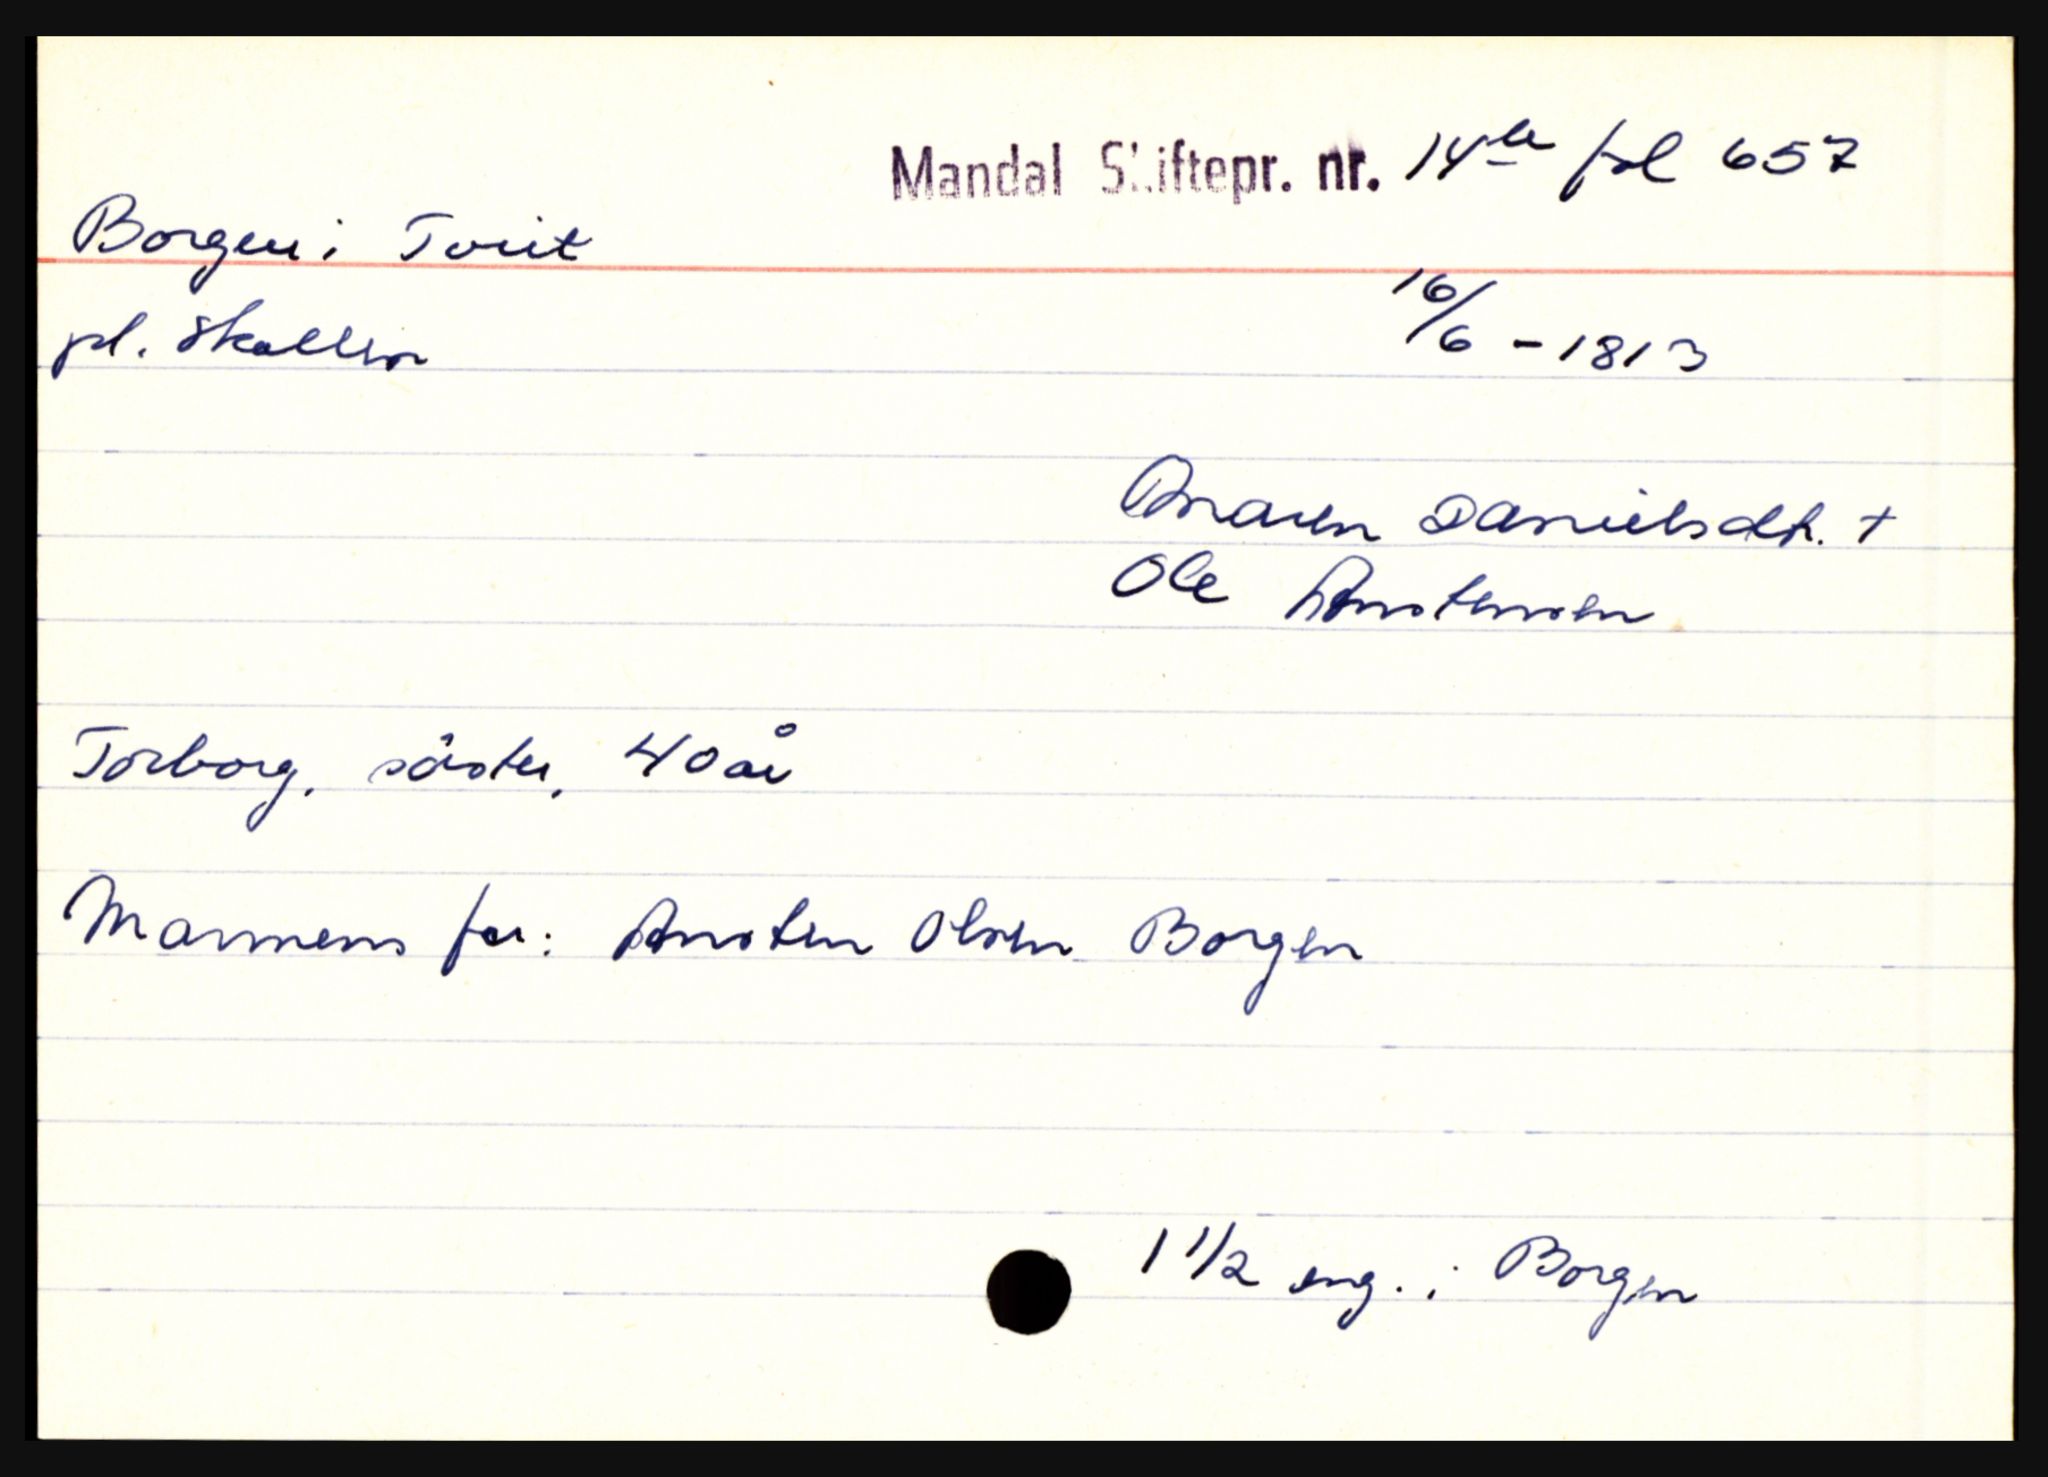 Mandal Skiftepr. nr. 14 fol 657
Borgen i Tveit
pl. Skallen
16/6 - 1813
Maren Danielsdtr. +
Ole Anstensen
Torborg, søster, 40 år
Mannens far: Ansten Olsen Borgen
1 1/2 eng. i Borgen